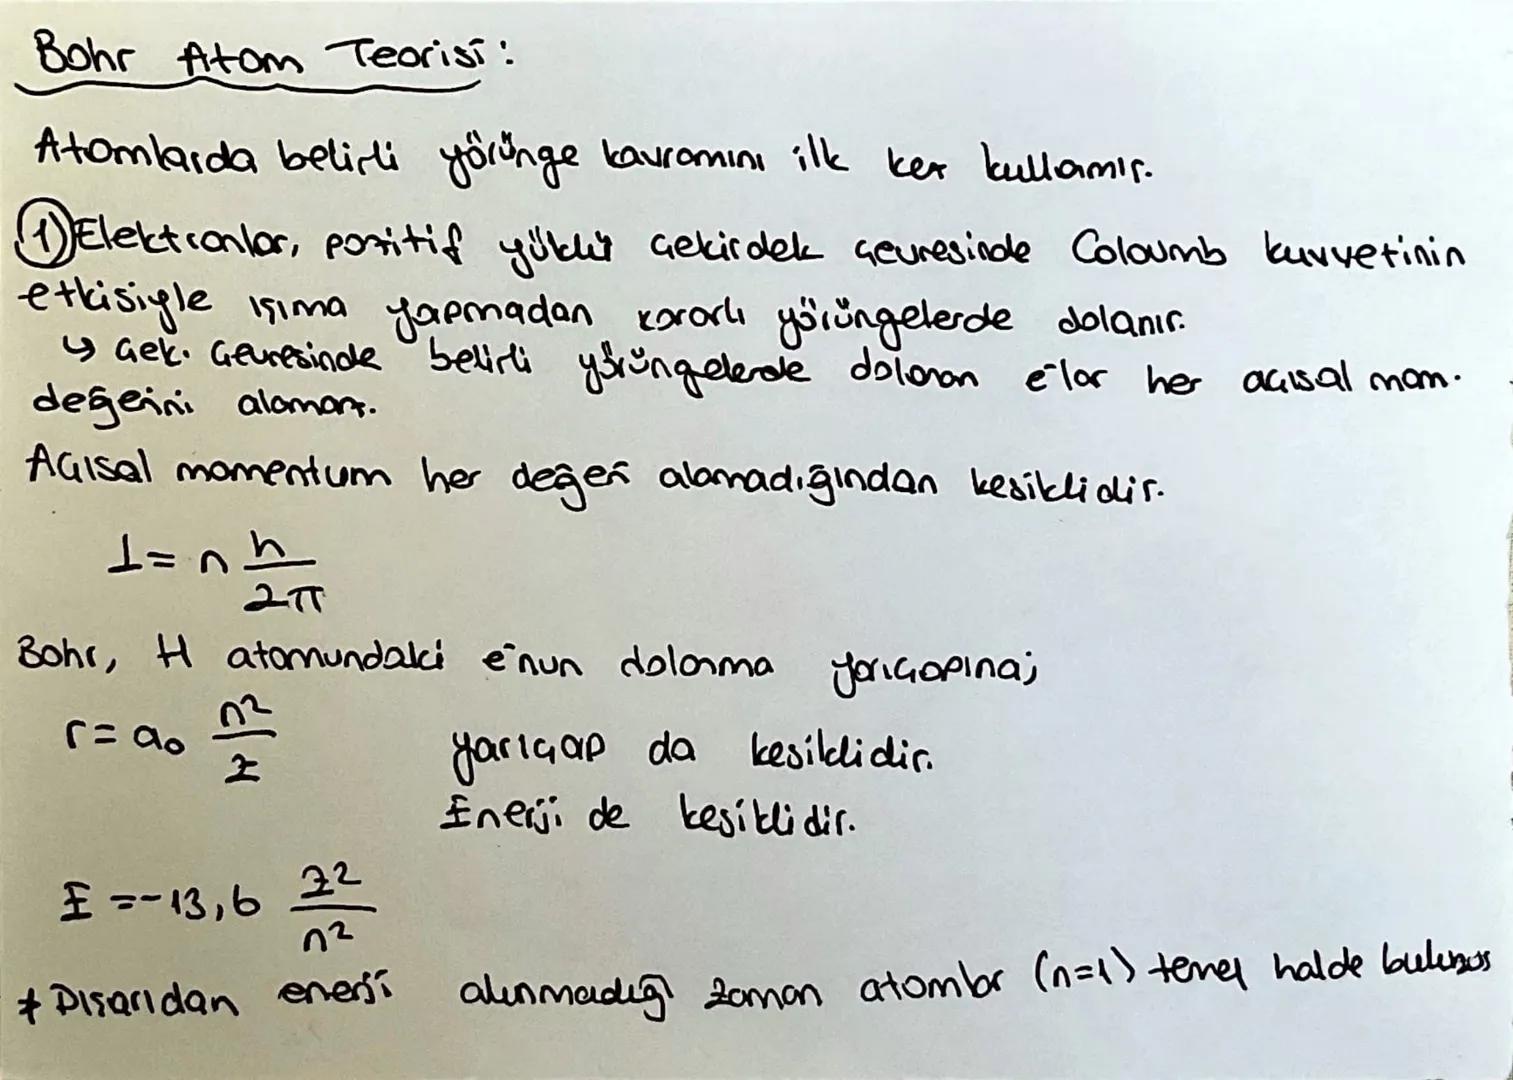 Bohr Atom Teorisi:
Atomlarda belirli yörünge kavramını ilk kez kullanmış.
1) Elektronlar, pozitif yüklü çekirdek çevresinde Coloumb kuvvetinin
etkisiyle ışıma yapmadan kararlı yörüngelerde dolanır.
↳ Çek. Çevresinde belirli yörüngelerde dolanan e⁻lar her açısal mom.
değerini alamaz.
Açısal momentum her değer alamadığından kesiklidir.
L = n h/2π
Bohr, H atomundaki e⁻nun dolanma yarıçapına;
r = a₀ n²/z
yarıçap da kesiklidir.
Enerji de kesiklidir.
E = -13,6 z²/n²
* Dışarıdan enerji alınmadığı zaman atomlar (n=1) temel halde